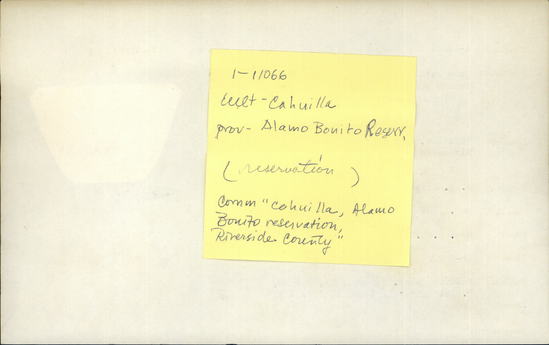 1-11066
Cult - Cahuilla
prov- Alamo Bonito Reserv.
(reservation)
Comm "Cahuilla, Alamo
Bonito reservation,
Riverside County"